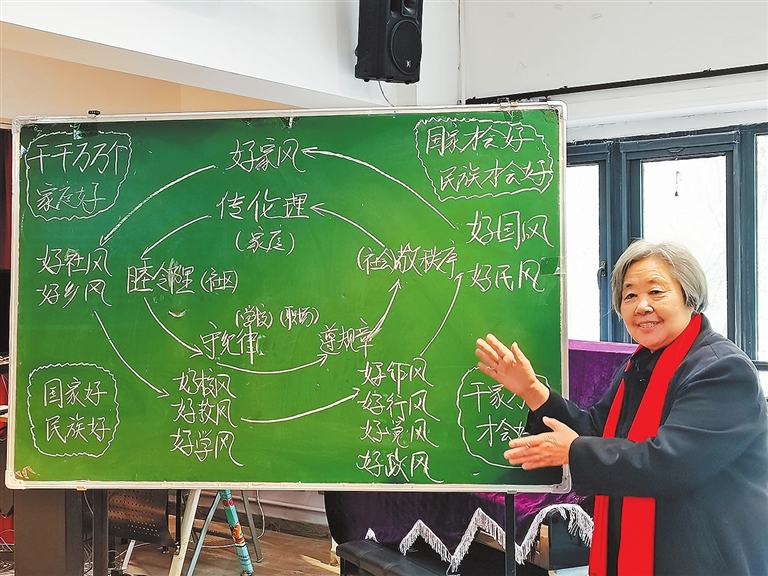 千千万万个
家庭好
好家风
传伦理
(家庭)
国家才会好
民族才会好
好国风
好民风
好社风
好乡风
睦邻里(社区)
(社会)敬秩序
(学校)(职场)
守纪律
遵规章
国家好
民族好
好校风
好教风
好学风
好作风
好行风
好党风
好政风
千家万
才会好